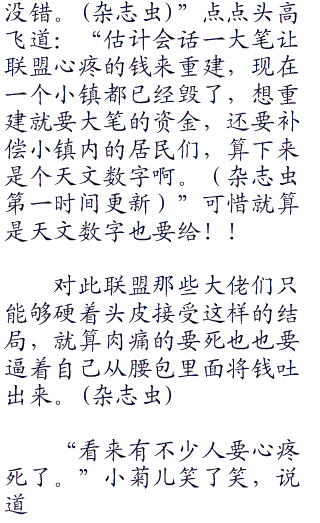 没错。(杂志虫)”点点头高
飞道：“估计会话一大笔让
联盟心疼的钱来重建，现在
一个小镇都已经毁了，想重
建就要大笔的资金，还要补
偿小镇内的居民们，算下来
是个天文数字啊。（杂志虫
第一时间更新）”可惜就算
是天文数字也要给！！
对此联盟那些大佬们只
能够硬着头皮接受这样的结
局，就算肉痛的要死也也要
逼着自己从腰包里面将钱吐
出来。(杂志虫)
“看来有不少人要心疼
死了。”小菊儿笑了笑，说
道